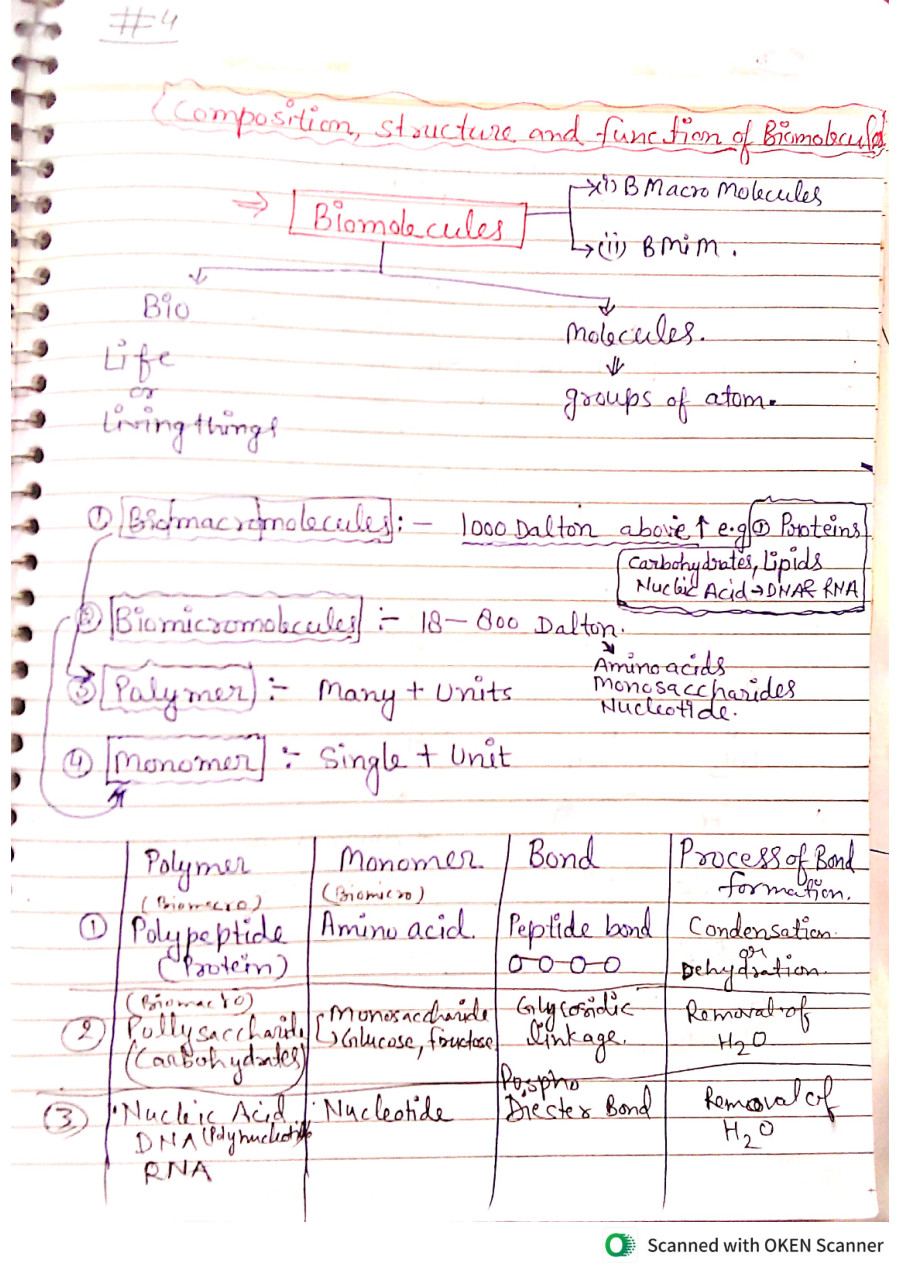 #4
Composition, structure and function of Biomolecules
⇒ Biomolecules
→(i) B Macro Molecules
→(ii) BMiM.
Bio
Life
or
Living things
Molecules.
groups of atom.
① Biomacromolecules :- 1000 Dalton above ↑ e.g ① Proteins
Carbohydrates, Lipids
Nucleic Acid → DNA & RNA
② Biomicromolecules :- 18-800 Dalton.
Amino acids
Monosaccharides
Nucleotide.
③ Palymer :- Many + Units
④ Monomer :- Single + Unit
Polymer (Biomacro) Monomer (Biomicro) Bond Process of Bond formation.
① Polypeptide (Protein) Amino acid. Peptide bond Condensation or Dehydration.
② (Biomacro) Pollysaccharide (Carbohydrates) Monosaccharide Glucose, fructose Glycosidic linkage. Removal of H2O
③ Nucleic Acid DNA (Polynucleotide) RNA Nucleotide Pospho Diester Bond Removal of H2O
Scanned with OKEN Scanner